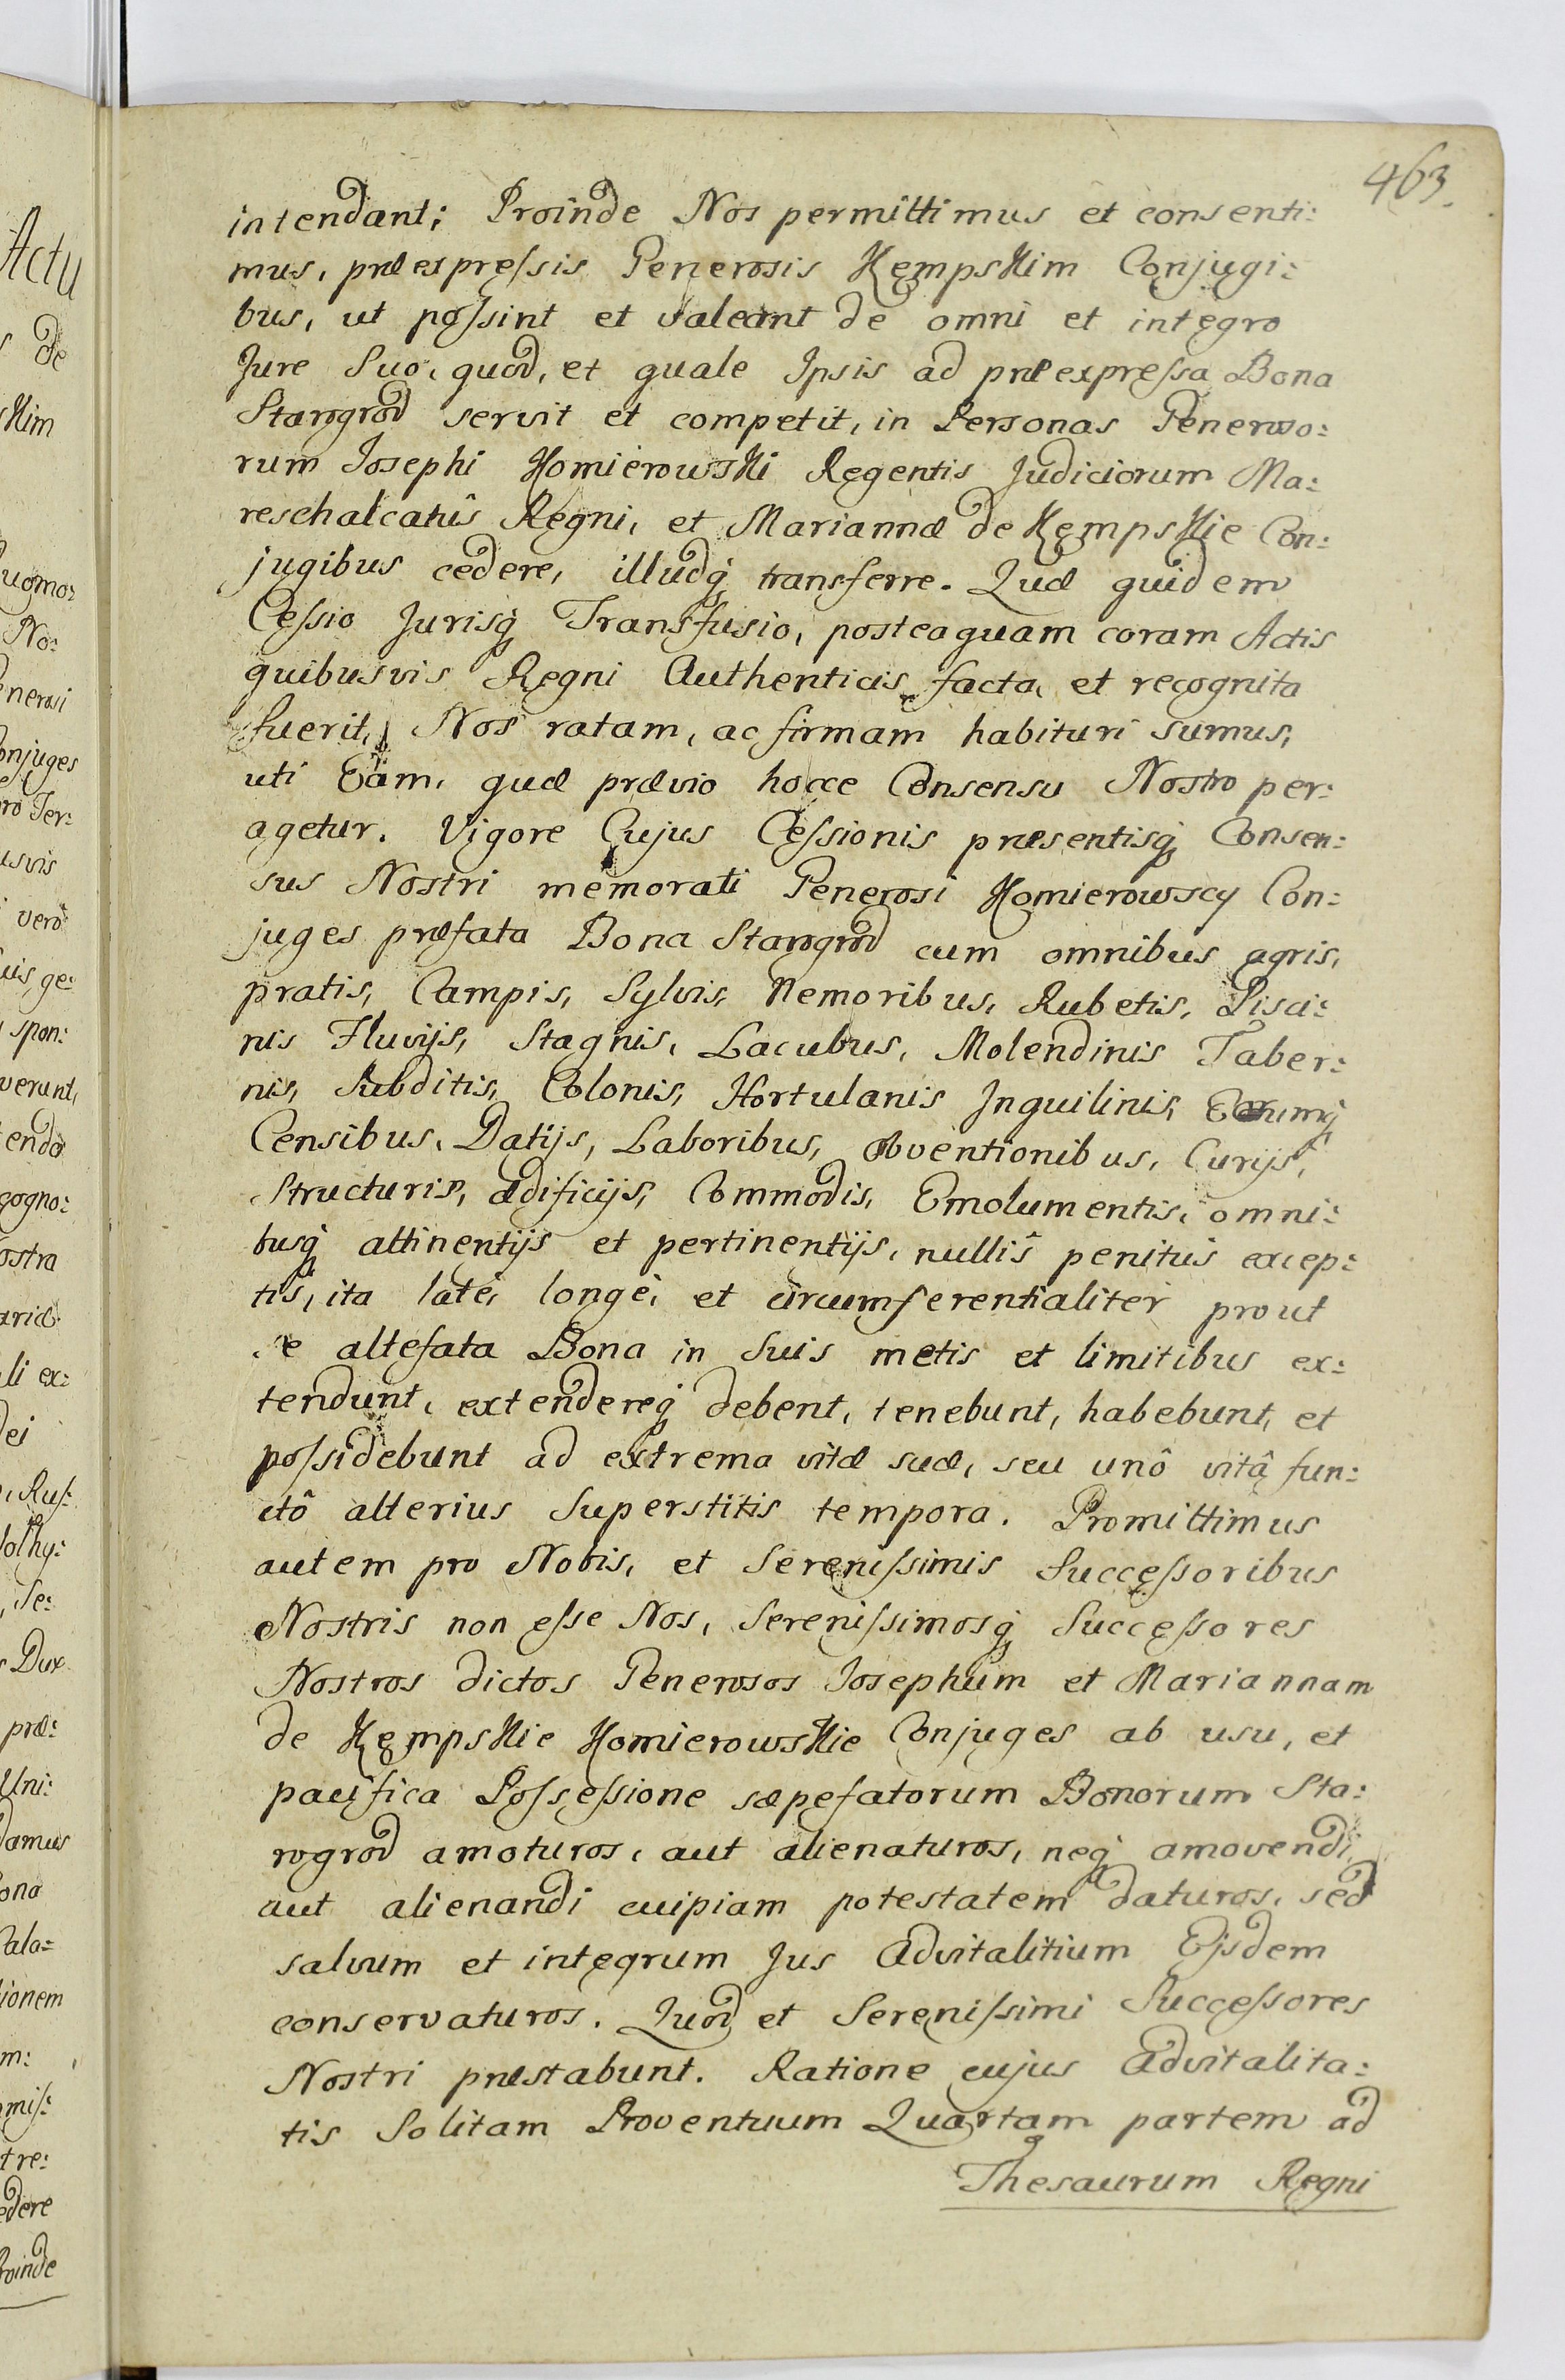 463.
intendant; Proinde Nos permittimus et consenti:
mus, præespreſsis Generosis Kempskim Conjugi:
bus, ut poſsint et valeant de omni et integro
Jure Suo, quod, et quale Ipsis ad præexpreſsa Bona
Starogrod servit et competit, in Personas Generoso:
rum Josephi Komierowski Regentis Judiciorum Ma:
reschalcatûs Regni, et Mariannæ de Kempskie Con:
jugibus cedere, illudq transferre. Quæ quidem
Ceſsio Jurisq Transfusio, posteaquam coram Actis
quibusvis Regni Authenticis facta, et recognita
fuerit, Nos ratam, ac firmam habituri sumus,
uti Eam, quæ prævio hocce Consensu Nostro per:
agetur. Vigore Cujus Ceſsionis præsentisq Consen:
sus Nostri memorati Generosi Komierowscy Con:
juges præfata Bona Starogrod cum omnibus agris,
pratis, Campis, Sylvis, Nemoribus, Rubetis, Pisci:
nis Fluvijs, Stagnis, Lacubus, Molendinis Taber:
nis, Subditis, Colonis, Hortulanis Inquilinis, Earumq
Censibus, Datijs, Laboribus, obventionibus, Curijs,
Structuris, ædificijs, Commodis, Emolumentis, omni:
busq attinentijs et pertinentijs, nullis penitus excep:
tis, ita latè, longè, et circumferentialiter prout
se altefata Bona in Suis metis et limitibus ex:
tendunt, extendereq debent, tenebunt, habebunt, et
poſsidebunt ad extrema vitæ suæ, seu unô vitâ fun:
ctô alterius Superstitis tempora. Promittimus
autem pro Nobis, et Sereniſsimis Succeſsoribus
Nostris non eſse Nos, Sereniſsimosq Succeſsores
Nostros dictos Generosos Josephum et Mariannam
de Kempskie Komierowskie Conjuges ab usu, et
pacifica Poſseſsione sæpefatorum Bonorum Sta:
rogrod amoturos, aut alienaturos, neq amovendi,
aut alienandi cuipiam potestatem daturos, sed
salvum et integrum Jus Advitalitium Ejsdem
conservaturos. Quod et Sereniſsimi Succeſsores
Nostri præstabunt. Ratione cujus Advitalita:
tis Solitam Proventuum Quartam partem ad
Thesaurum Regni